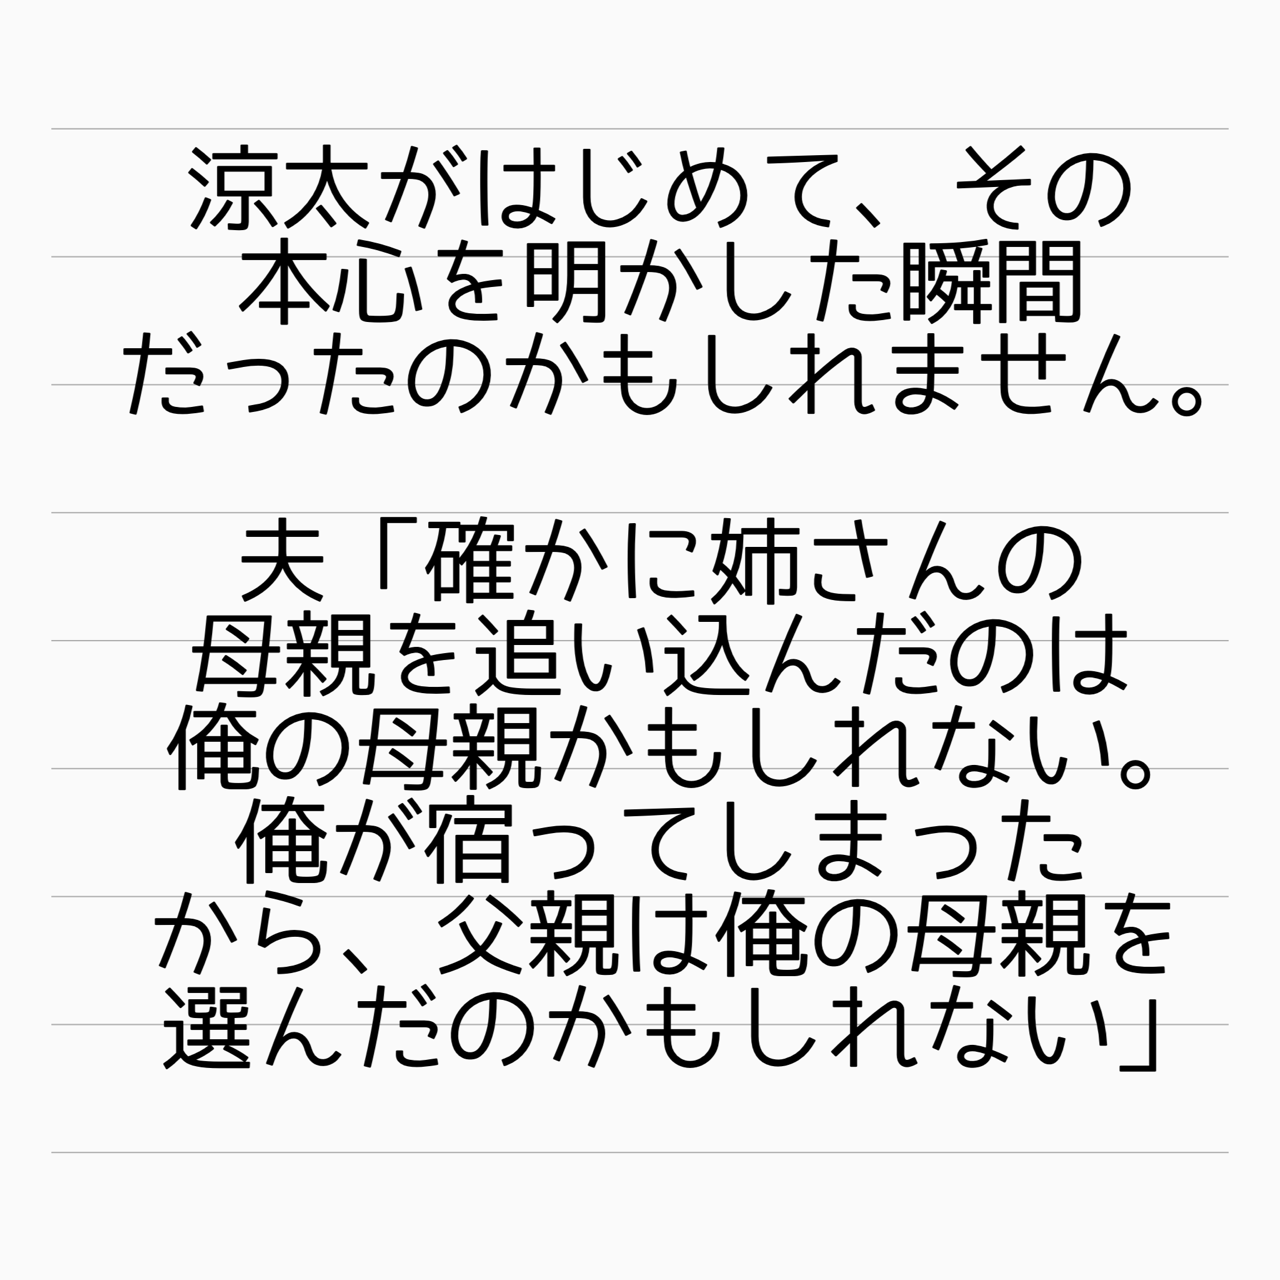 涼太がはじめて、その
本心を明かした瞬間
だったのかもしれません。
夫「確かに姉さんの
母親を追い込んだのは
俺の母親かもしれない。
俺が宿ってしまった
から、父親は俺の母親を
選んだのかもしれない」